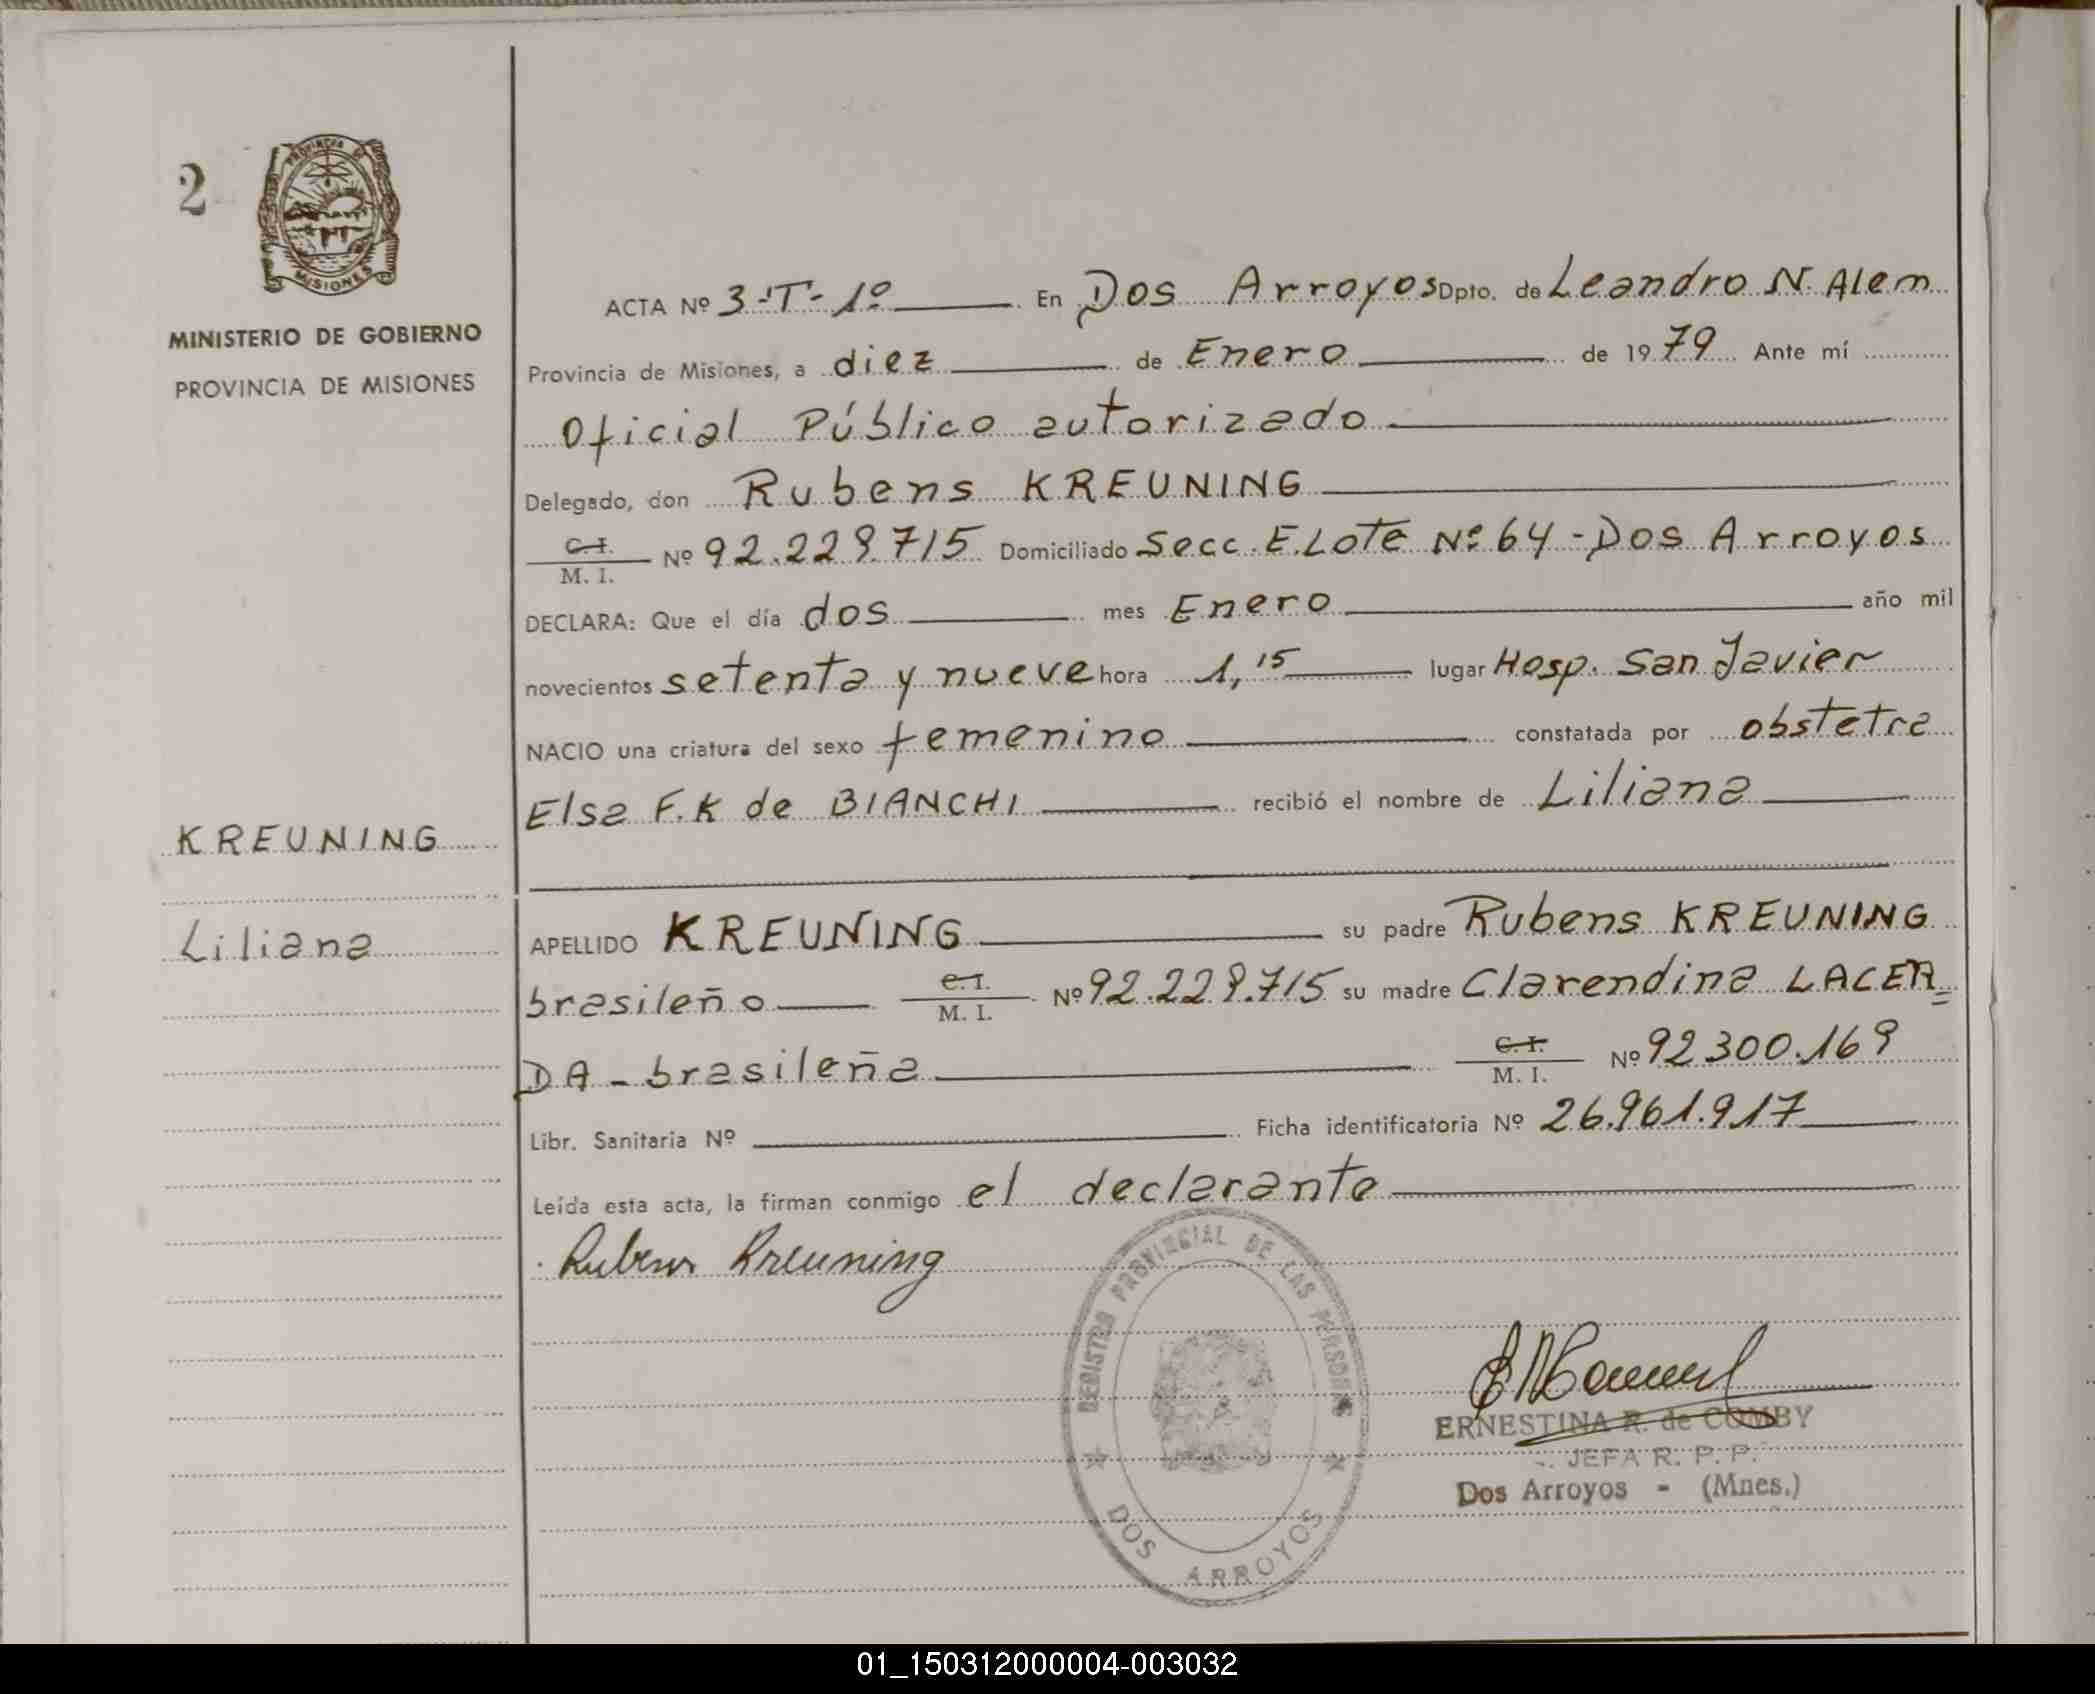 2
PROVINCIA DE
MISIONES
MINISTERIO DE GOBIERNO
PROVINCIA DE MISIONES
KREUNING
Liliana
ACTA Nº 3-T-1º En Dos Arroyos Dpto. de Leandro N. Alem
Provincia de Misiones, a diez de Enero de 1979 Ante mí
Oficial Público autorizado
Delegado, don Rubens KREUNING
C.I.
M. I. Nº 92.229.715 Domiciliado Secc. E. Lote Nº 64 - Dos Arroyos
DECLARA: Que el día dos mes Enero año mil
novecientos setenta y nueve hora 1,15 lugar Hosp. San Javier
NACIO una criatura del sexo femenino constatada por obstetra
Elsa F.K de BIANCHI recibió el nombre de Liliana
APELLIDO KREUNING su padre Rubens KREUNING
brasileño C.I. M. I. Nº 92.229.715 su madre Clarendina LACER=
DA - brasileña C. I. M. I. Nº 92300.169
Libr. Sanitaria Nº Ficha identificatoria Nº 26.961.917
Leída esta acta, la firman conmigo el declarante
Rubens Kreuning
REGISTRO PROVINCIAL DE LAS PERSONAS
DOS ARROYOS
ERNESTINA R. de COMBY
JEFA R. P. P.
Dos Arroyos - (Mnes.)
01_150312000004-003032